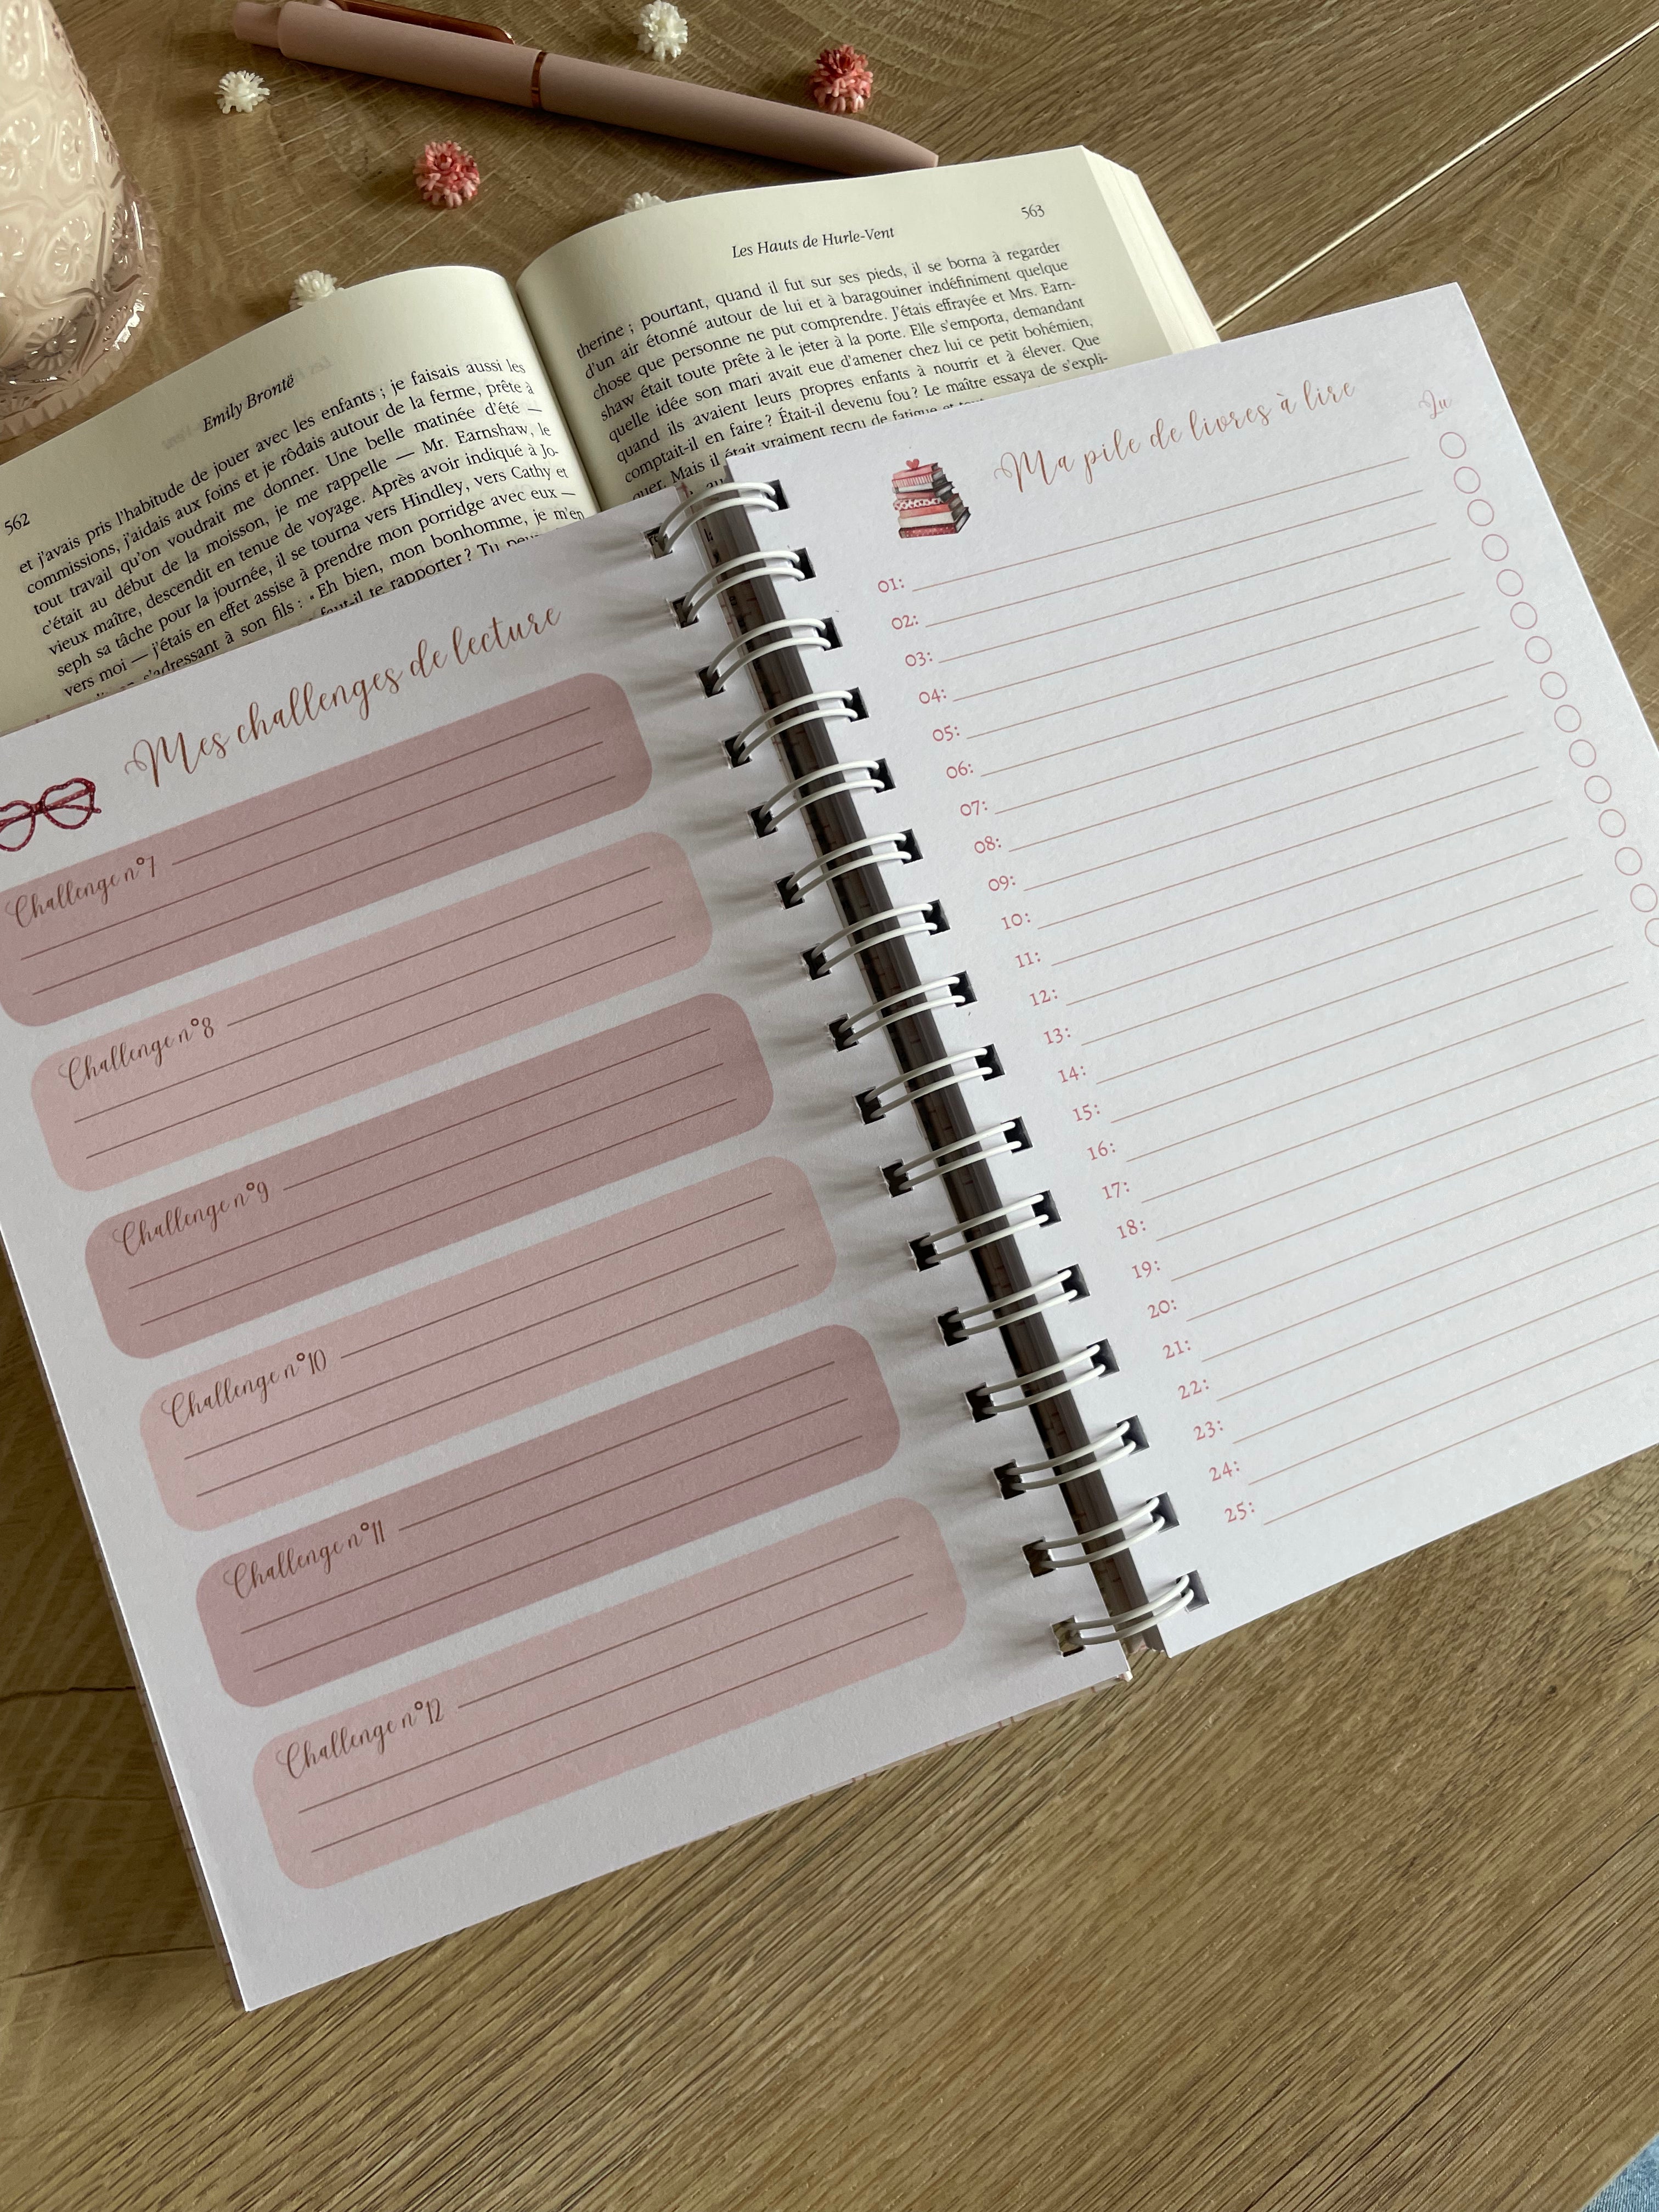 562
Emily Brontë
et j'avais pris l'habitude de jouer avec les enfants ; je faisais aussi les
commissions, j'aidais aux foins et je rôdais autour de la ferme, prête à
tout travail qu'on voudrait me donner. Une belle matinée d'été —
c'était au début de la moisson, je me rappelle — Mr. Earnshaw, le
vieux maître, descendit en tenue de voyage. Après avoir indiqué à Jo-
seph sa tâche pour la journée, il se tourna vers Hindley, vers Cathy et
vers moi — j'étais en effet assise à prendre mon porridge avec eux —
s'adressant à son fils : « Eh bien, mon bonhomme, je m'en
faut-il te rapporter ? Tu
563
Les Hauts de Hurle-Vent
therine ; pourtant, quand il fut sur ses pieds, il se borna à regarder
d'un air étonné autour de lui et à baragouiner indéfiniment quelque
chose que personne ne put comprendre. J'étais effrayée et Mrs. Earn-
shaw était toute prête à le jeter à la porte. Elle s'emporta, demandant
quelle idée son mari avait eue d'amener chez lui ce petit bohémien,
quand ils avaient leurs propres enfants à nourrir et à élever. Que
comptait-il en faire ? Était-il devenu fou ? Le maître essaya de s'expli-
quer. Mais il était vraiment recru de fatigue et
Mes challenges de lecture
Challenge n°7
Challenge n°8
Challenge n°9
Challenge n°10
Challenge n°11
Challenge n°12
Ma pile de livres à lire
Lu
01:
02:
03:
04:
05:
06:
07:
08:
09:
10:
11:
12:
13:
14:
15:
16:
17:
18:
19:
20:
21:
22:
23:
24:
25: